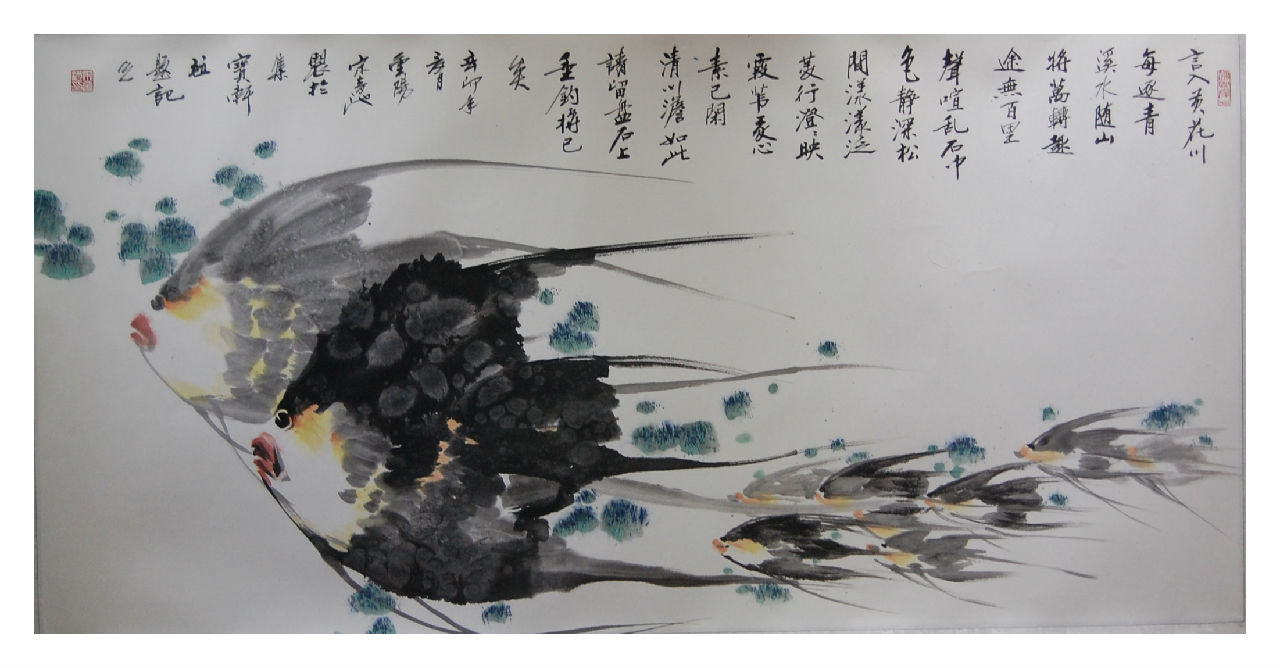 言入黄花川
每逐青
溪水随山
將萬轉趣
途無百里
聲喧乱石中
色静深松
間漾漾泛
菱行澄々映
霞苇我心
素已閑
清川澹如此
請留盘石上
垂釣將已
矣
辛卯年
雲陽
宋
製於
集
寶軒
並
題記
之